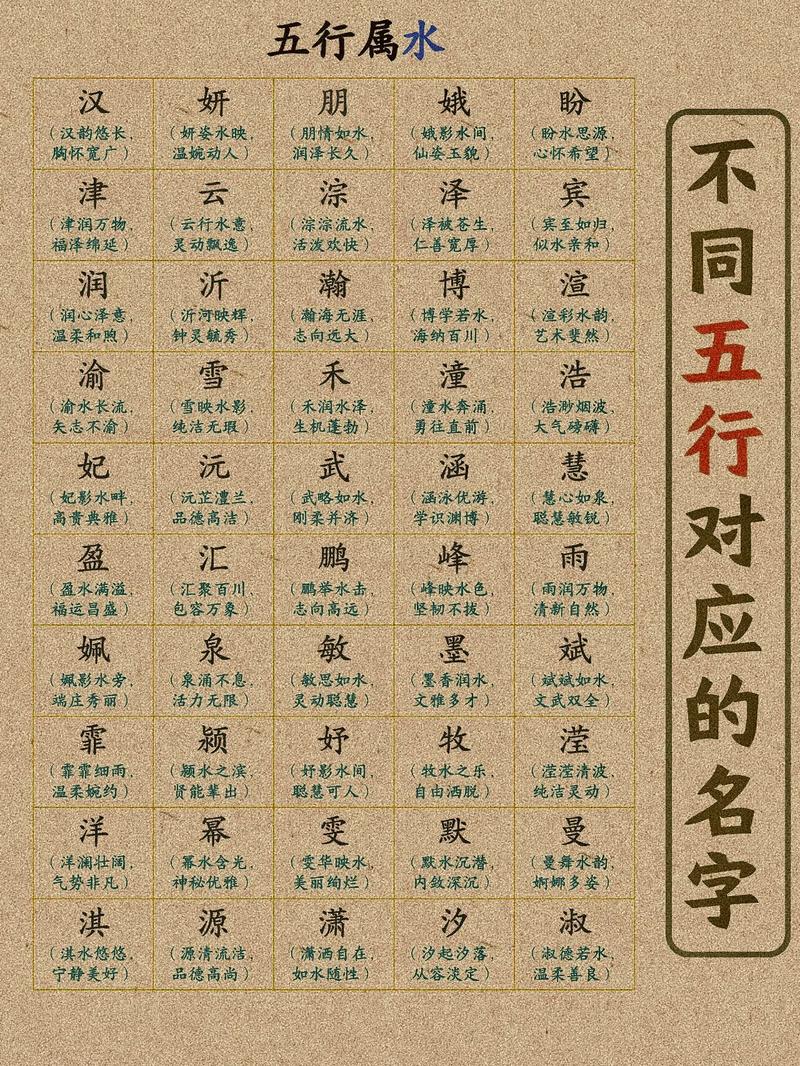 五行属水
汉
（汉韵悠长，
胸怀宽广）
妍
（妍姿水映，
温婉动人）
朋
（朋情如水，
润泽长久）
娥
（娥影水间，
仙姿玉貌）
盼
（盼水思源，
心怀希望）
津
（津润万物，
福泽绵延）
云
（云行水意，
灵动飘逸）
淙
（淙淙流水，
活泼欢快）
泽
（泽被苍生，
仁善宽厚）
宾
（宾至如归，
似水亲和）
润
（润心泽意，
温柔和煦）
沂
（沂河映辉，
钟灵毓秀）
瀚
（瀚海无涯，
志向远大）
博
（博学若水，
海纳百川）
渲
（渲彩水韵，
艺术斐然）
渝
（渝水长流，
矢志不渝）
雪
（雪映水影，
纯洁无瑕）
禾
（禾润水泽，
生机蓬勃）
潼
（潼水奔涌，
勇往直前）
浩
（浩渺烟波，
大气磅礴）
妃
（妃影水畔，
高贵典雅）
沅
（沅芷澧兰，
品德高洁）
武
（武略如水，
刚柔并济）
涵
（涵泳优游，
学识渊博）
慧
（慧心如泉，
聪慧敏锐）
盈
（盈水满溢，
福运昌盛）
汇
（汇聚百川，
包容万象）
鹏
（鹏举水击，
志向高远）
峰
（峰映水色，
坚韧不拔）
雨
（雨润万物，
清新自然）
姵
（姵影水旁，
端庄秀丽）
泉
（泉涌不息，
活力无限）
敏
（敏思如水，
灵动聪慧）
墨
（墨香润水，
文雅多才）
斌
（斌斌如水，
文武双全）
霏
（霏霏细雨，
温柔婉约）
颍
（颍水之滨，
贤能辈出）
妤
（妤影水间，
聪慧可人）
牧
（牧水之乐，
自由洒脱）
滢
（滢滢清波，
纯洁灵动）
洋
（洋澜壮阔，
气势非凡）
幂
（幂水含光，
神秘优雅）
雯
（雯华映水，
美丽绚烂）
默
（默水沉潜，
内敛深沉）
曼
（曼舞水韵，
婀娜多姿）
淇
（淇水悠悠，
宁静美好）
源
（源清流洁，
品德高尚）
潇
（潇洒自在，
如水随性）
汐
（汐起汐落，
从容淡定）
淑
（淑德若水，
温柔善良）
不同五行对应的名字